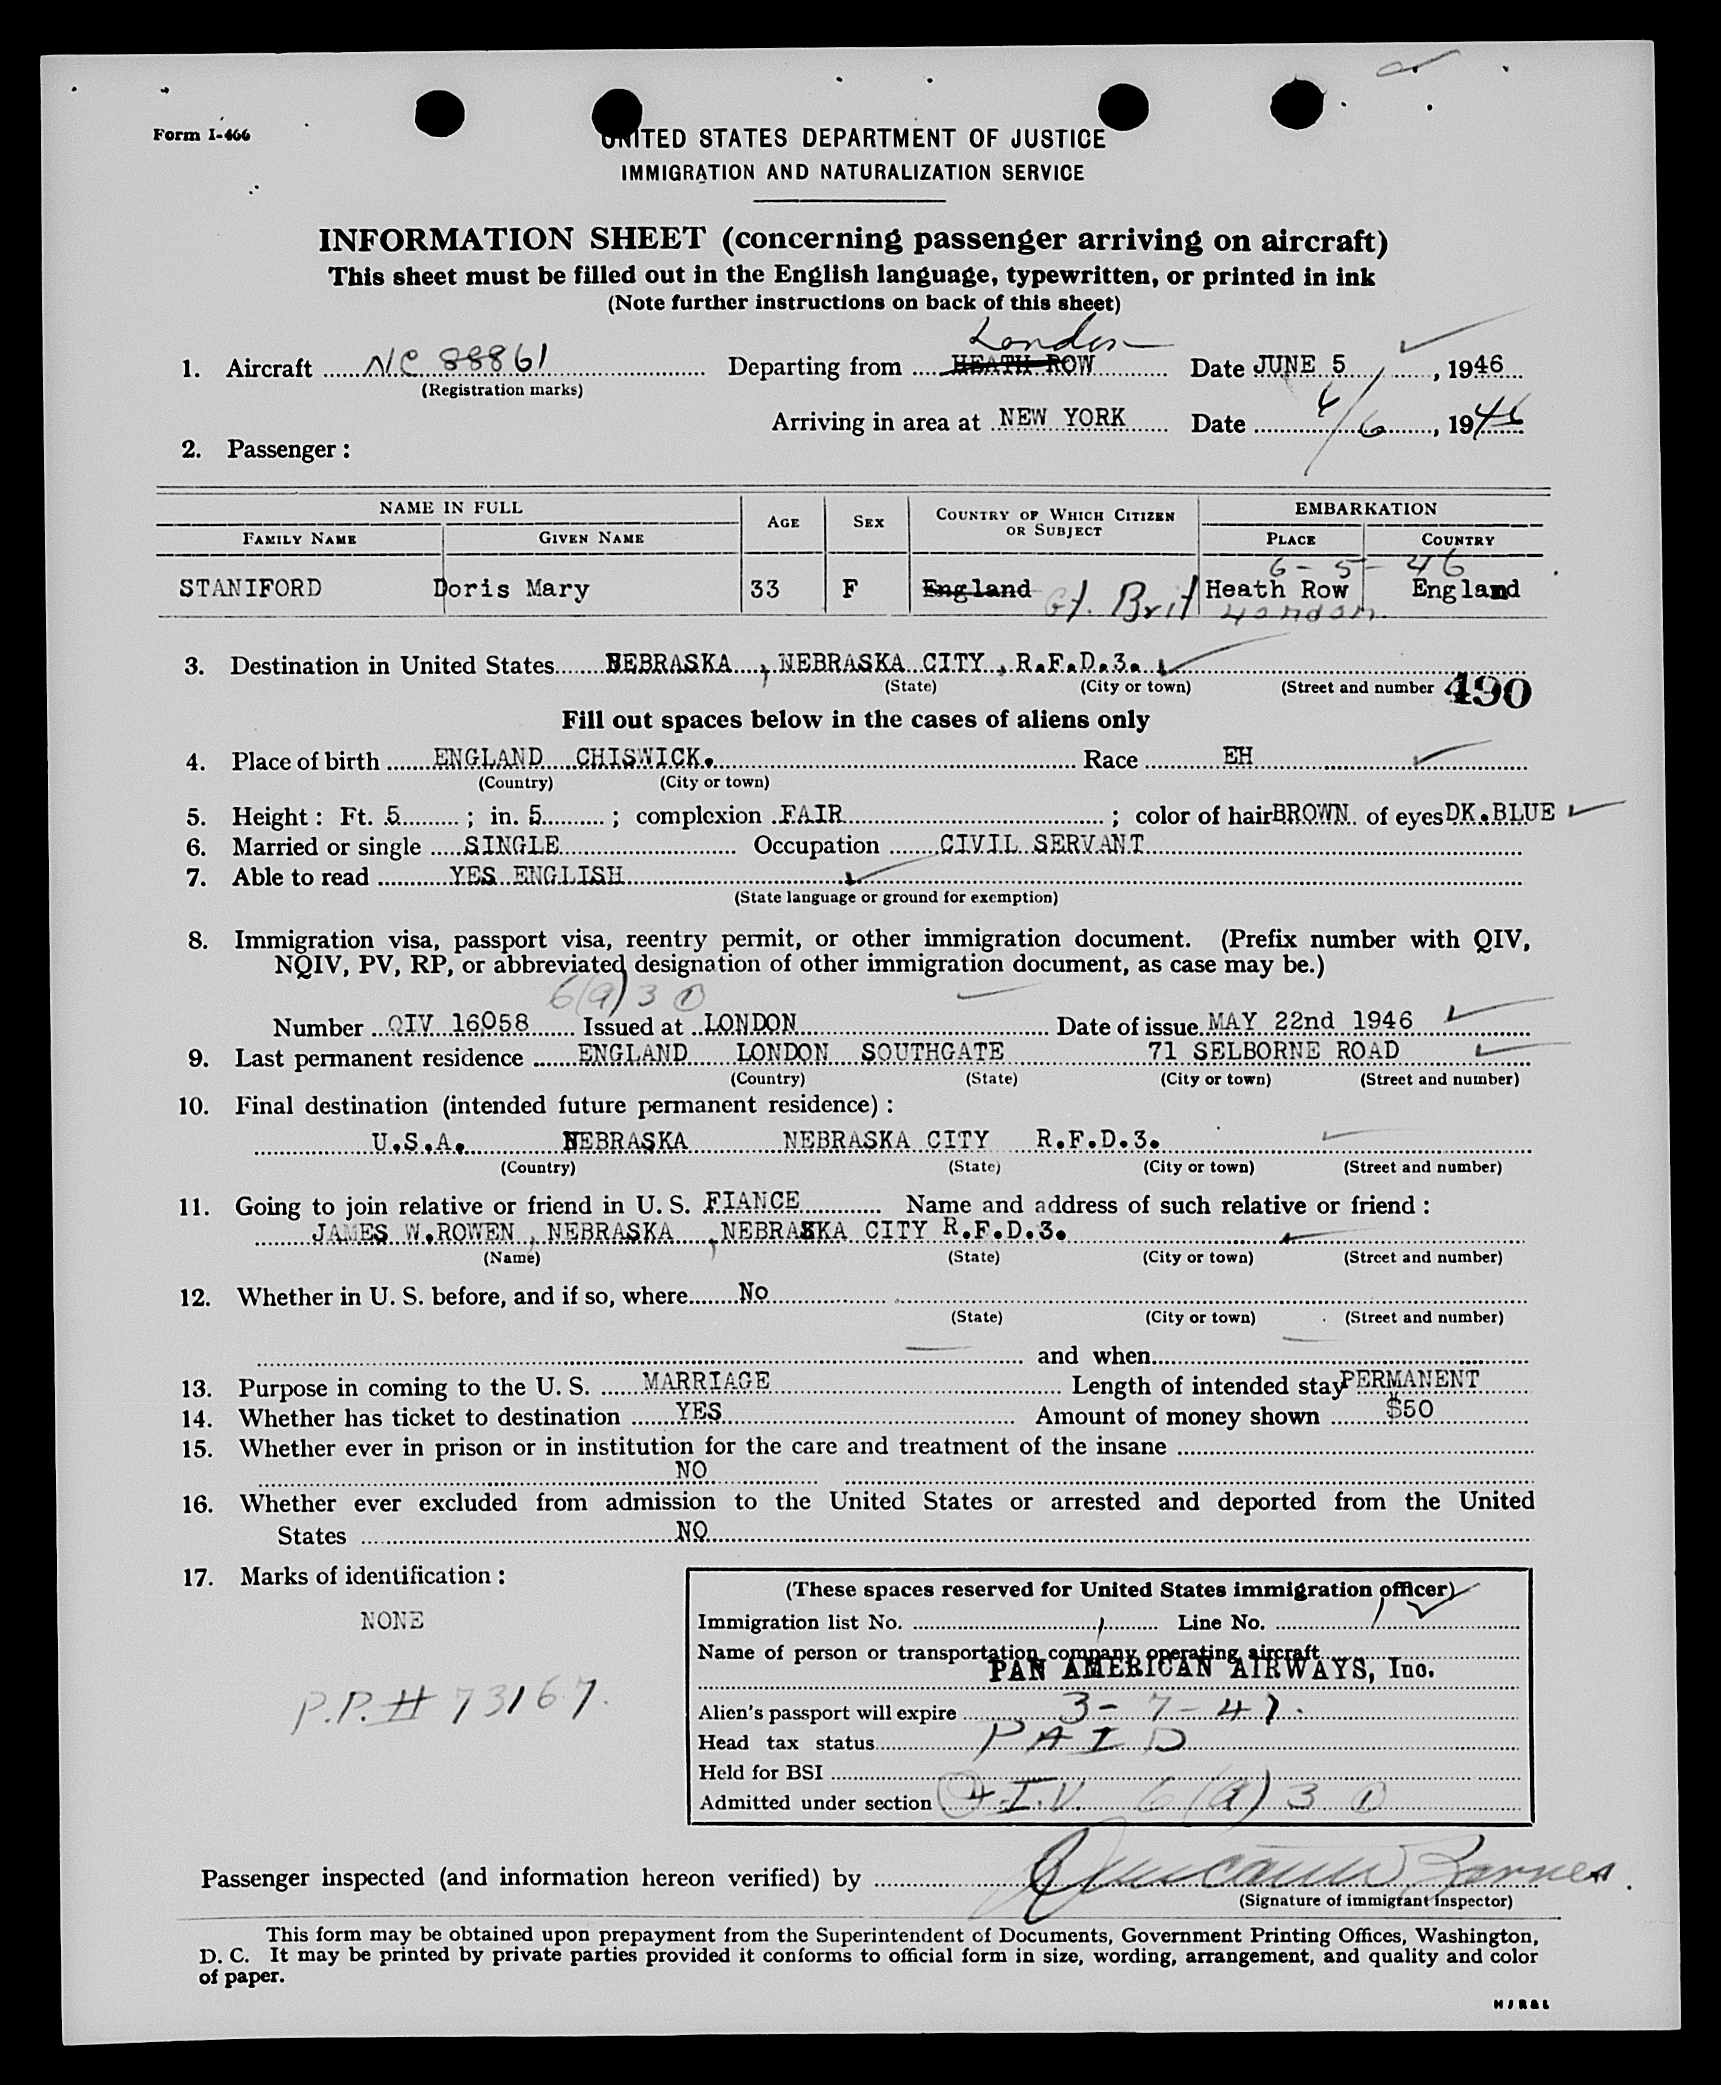 Form I-466
UNITED STATES DEPARTMENT OF JUSTICE
IMMIGRATION AND NATURALIZATION SERVICE
INFORMATION SHEET (concerning passenger arriving on aircraft)
This sheet must be filled out in the English language, typewritten, or printed in ink
(Note further instructions on back of this sheet)
London
1. Aircraft NC 88861 Departing from HEATH ROW Date JUNE 5, 1946
(Registration marks)
Arriving in area at NEW YORK Date 6/6, 1946
2. Passenger:
NAME IN FULL AGE SEX COUNTRY OF WHICH CITIZEN OR SUBJECT EMBARKATION
FAMILY NAME GIVEN NAME PLACE COUNTRY
6-5-46
STANIFORD Doris Mary 33 F England Gt. Brit Heath Row England
London
3. Destination in United States NEBRASKA, NEBRASKA CITY, R.F.D.3.
(State) (City or town) (Street and number
490
Fill out spaces below in the cases of aliens only
4. Place of birth ENGLAND CHISWICK. Race EH
(Country) (City or town)
5. Height: Ft. 5; in. 5; complexion FAIR; color of hair BROWN of eyes DK.BLUE
6. Married or single SINGLE Occupation CIVIL SERVANT
7. Able to read YES ENGLISH
(State language or ground for exemption)
8. Immigration visa, passport visa, reentry permit, or other immigration document. (Prefix number with QIV,
NQIV, PV, RP, or abbreviated designation of other immigration document, as case may be.)
6(a)3 ①
Number QIV 16058 Issued at LONDON Date of issue MAY 22nd 1946
9. Last permanent residence ENGLAND LONDON SOUTHGATE 71 SELBORNE ROAD
(Country) (State) (City or town) (Street and number)
10. Final destination (intended future permanent residence):
U.S.A. NEBRASKA NEBRASKA CITY R.F.D.3.
(Country) (State) (City or town) (Street and number)
11. Going to join relative or friend in U. S. FIANCE Name and address of such relative or friend:
JAMES W.ROWEN, NEBRASKA, NEBRASKA CITY R.F.D.3.
(Name) (State) (City or town) (Street and number)
12. Whether in U. S. before, and if so, where No
(State) (City or town) (Street and number)
and when
13. Purpose in coming to the U. S. MARRIAGE Length of intended stay PERMANENT
14. Whether has ticket to destination YES Amount of money shown $50
15. Whether ever in prison or in institution for the care and treatment of the insane
NO
16. Whether ever excluded from admission to the United States or arrested and deported from the United
States NO
17. Marks of identification:
NONE
P.P.# 73167.
(These spaces reserved for United States immigration officer)
Immigration list No. 1 Line No. 1
Name of person or transportation company operating aircraft
PAN AMERICAN AIRWAYS, Inc.
Alien's passport will expire 3-7-47.
Head tax status PAID
Held for BSI
Admitted under section Q.I.V. 6(a)3 ①
Passenger inspected (and information hereon verified) by
(Signature of immigrant inspector)
This form may be obtained upon prepayment from the Superintendent of Documents, Government Printing Offices, Washington,
D. C. It may be printed by private parties provided it conforms to official form in size, wording, arrangement, and quality and color
of paper.